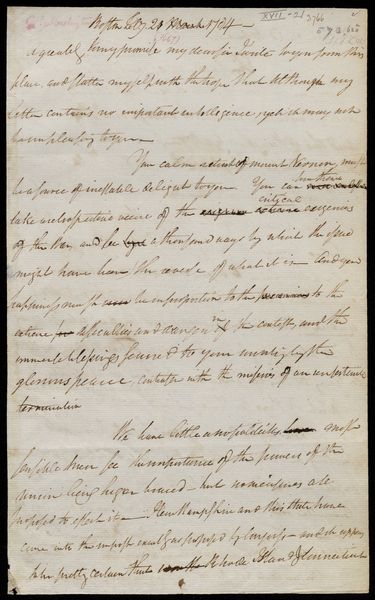 Boston 28 March 1784 —
agreeably to my promise my dear sir I write to you from this
place, and flatter myself with the hope that although my
letter contains no important intelligence yet it may not
be unpleasing to you —
You calm retreat at mount Vernon, must
be a source of ineffable delight to you. You can from there
take a retrospective view of the critical exigencies
of the War, and see a thousand ways by which the issue
might have been the reverse of what it is — And your
happiness must be in proportion to the to the
extreme difficulties and danger of the contest, and the
immense blessings secured to your country by the
glorious peace, contrasted with the miseries of an unfortunate
termination
We have little a politicks most
sensible men see the importance of the powers of the
union being large — but no measures are
proposed to effect it — New Hampshire and this state have
come into the impost exactly as proposed by Congress — and it appears
to be pretty certain that Rhode Island & Connecticut